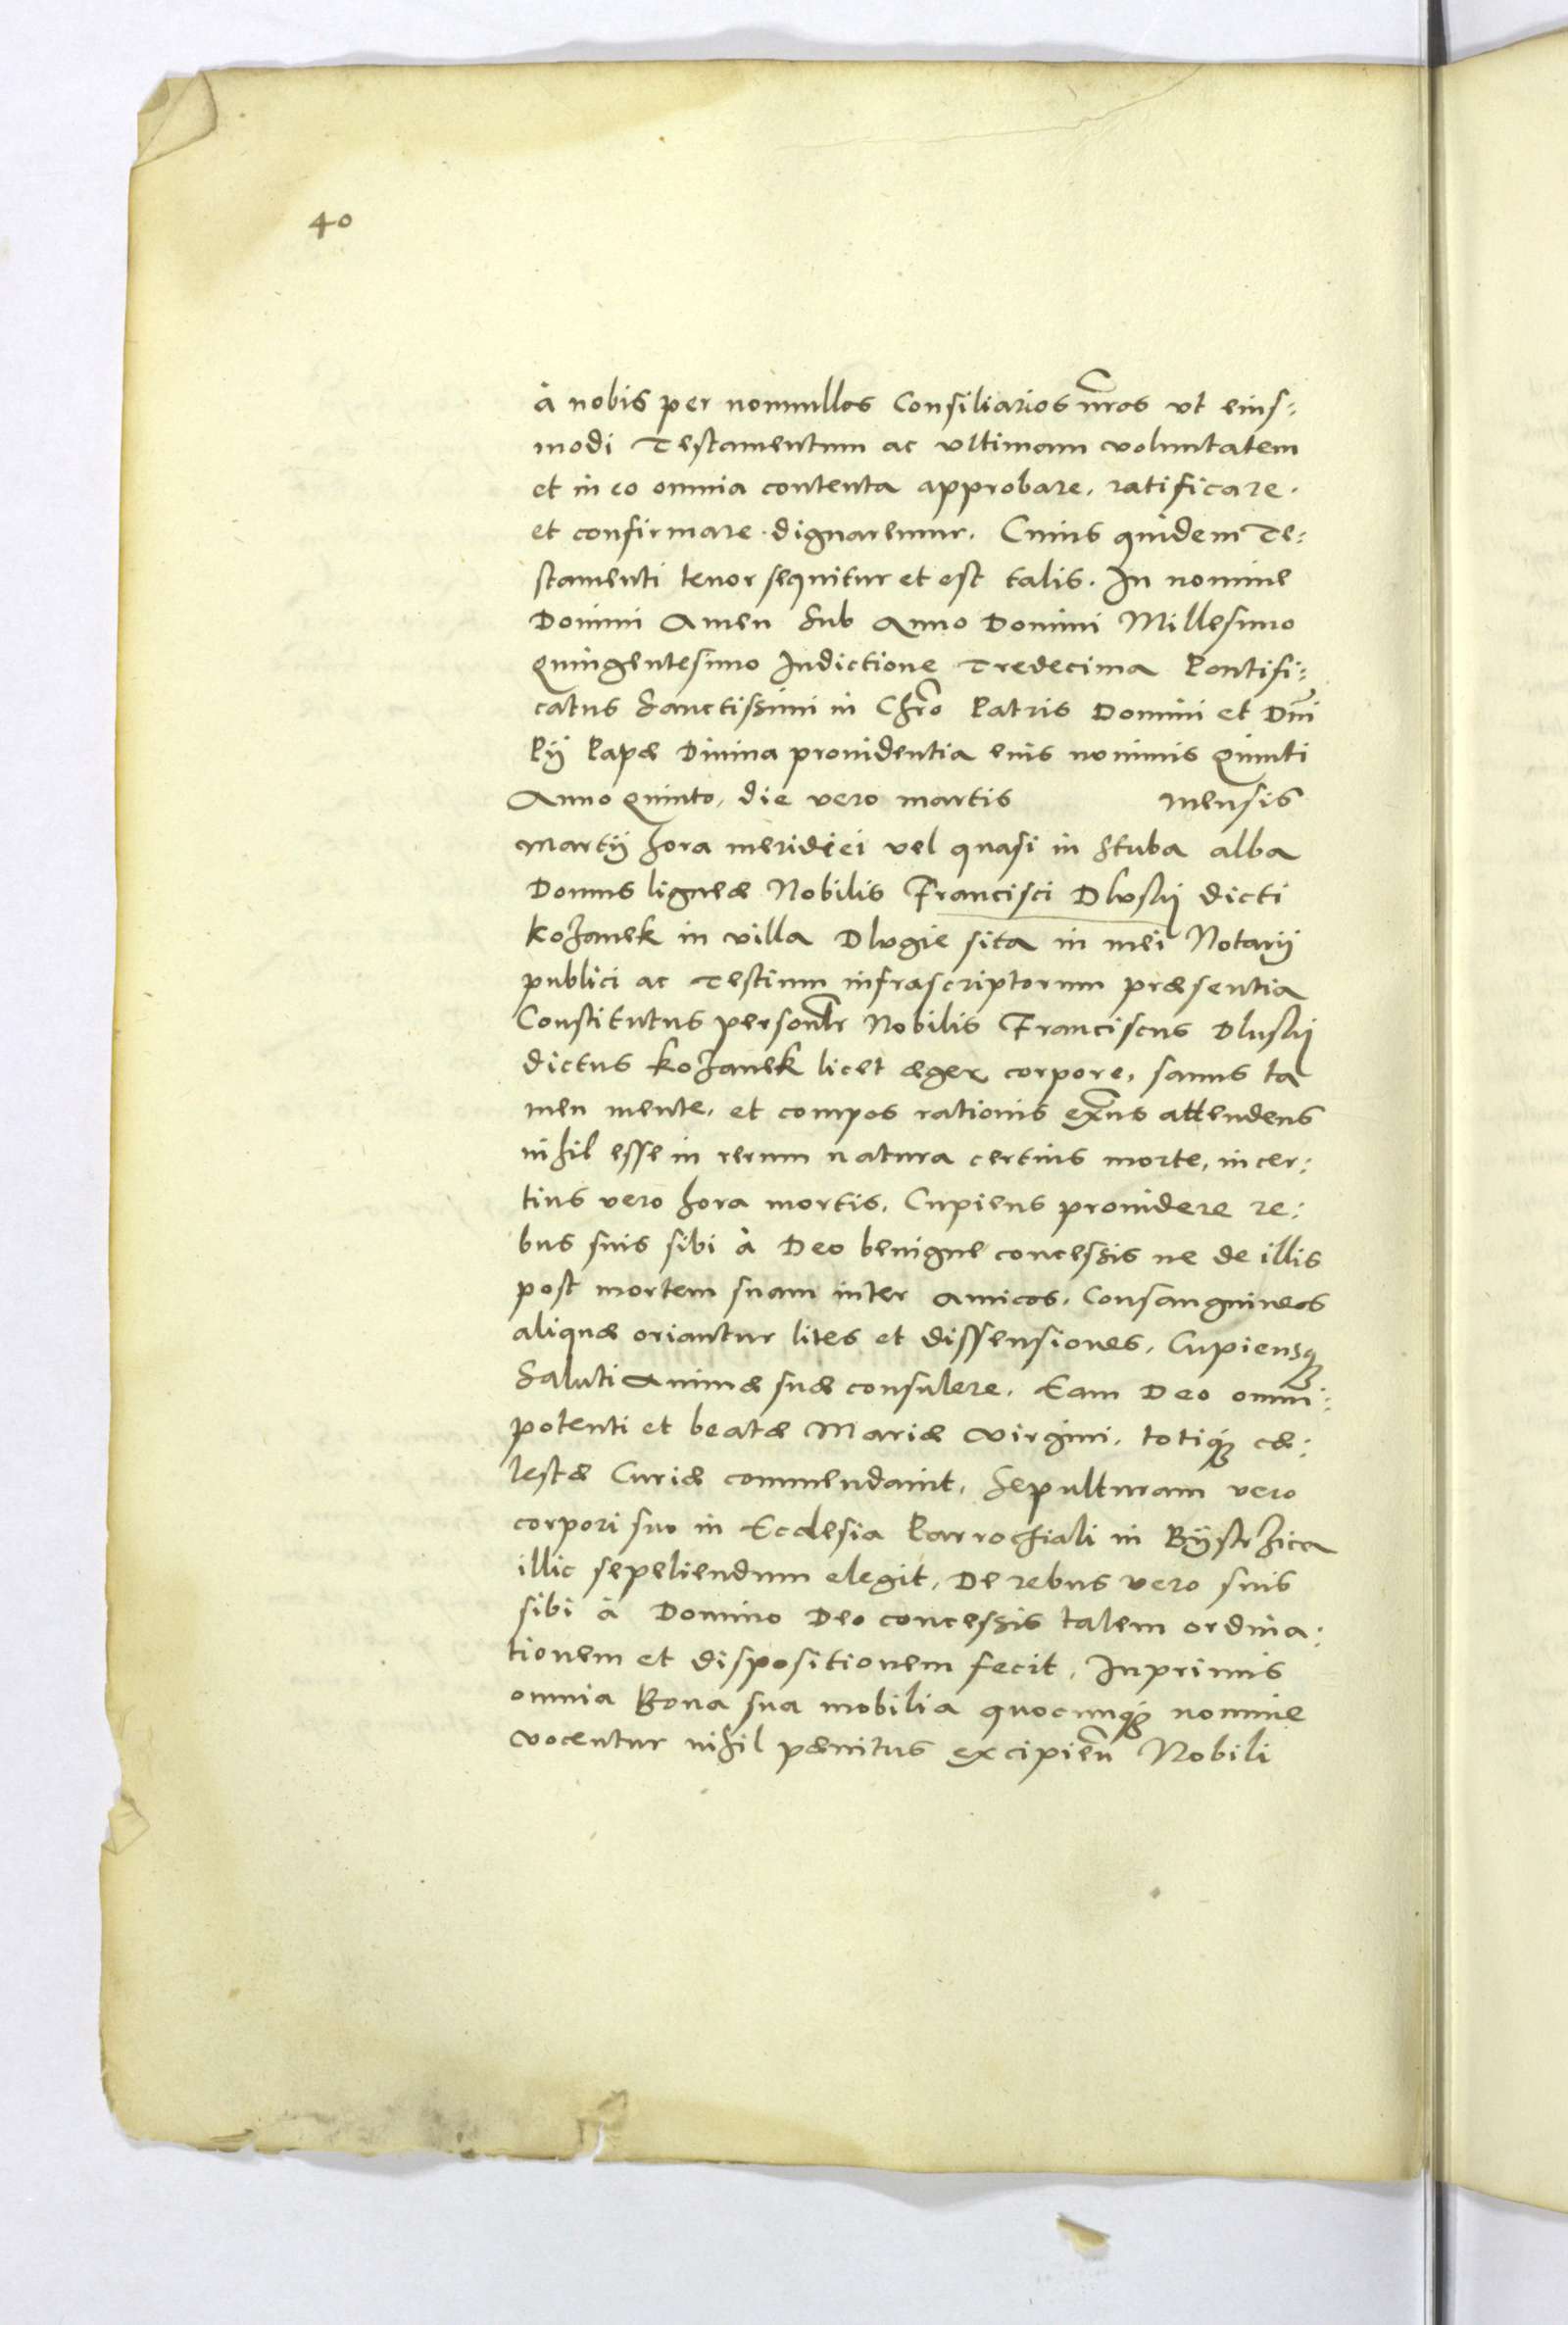 40
à nobis per nonnullos Consiliarios nr̃os vt eius-
modi Testamentum ac vltimam voluntatem
et in eo omnia contenta approbare, ratificare,
et confirmare dignaremur. Cuius quidem Te-
stamenti tenor sequitur et est talis. In nomine
Domini Amen Sub Anno Domini Millesimo
Quingentesimo Indictione Tredecima Pontifi-
catus Sanctissimi in Chr̃o Patris Domini et Dñi
Pij Papæ Diuina prouidentia eius nominis Quinti
Anno Quinto, die vero martis mensis
Martij hora meridiei vel quasi in Stuba alba
Domus ligneæ Nobilis Francisci Dlvskij dicti
Kozanek in villa Dlvgie sita in mei Notarij
publici ac Testium infrascriptorum præsentia
Constitutus personlr̃ Nobilis Franciscus Dluskij
dictus Kozanek licet æger corpore, sanus ta
men mente, et compos rationis exñs attendens
nihil esse in rerum natura certius morte, incer-
tius vero hora mortis, Cupiens prouidere re-
bus suis sibi à Deo benigne concessis ne de illis
post mortem suam inter amicos, Consanguineos
aliquæ oriantur lites et dissensiones, Cupiensq;
Saluti Animæ suæ consulere, Eam Deo omni-
potenti et beatæ Mariæ Virgini, totiq; cæ-
lestæ Curiæ commendauit, Sepulturam vero
corpori suo in Ecclesia Parrochiali in Bijstrzica
illic sepeliendum elegit, De rebus vero suis
sibi à Domino Deo concessis talem ordina-
tionem et dispositionem fecit, Inprimis
omnia Bona sua mobilia quocunq; nomine
vocentur nihil pænitus excipień Nobili